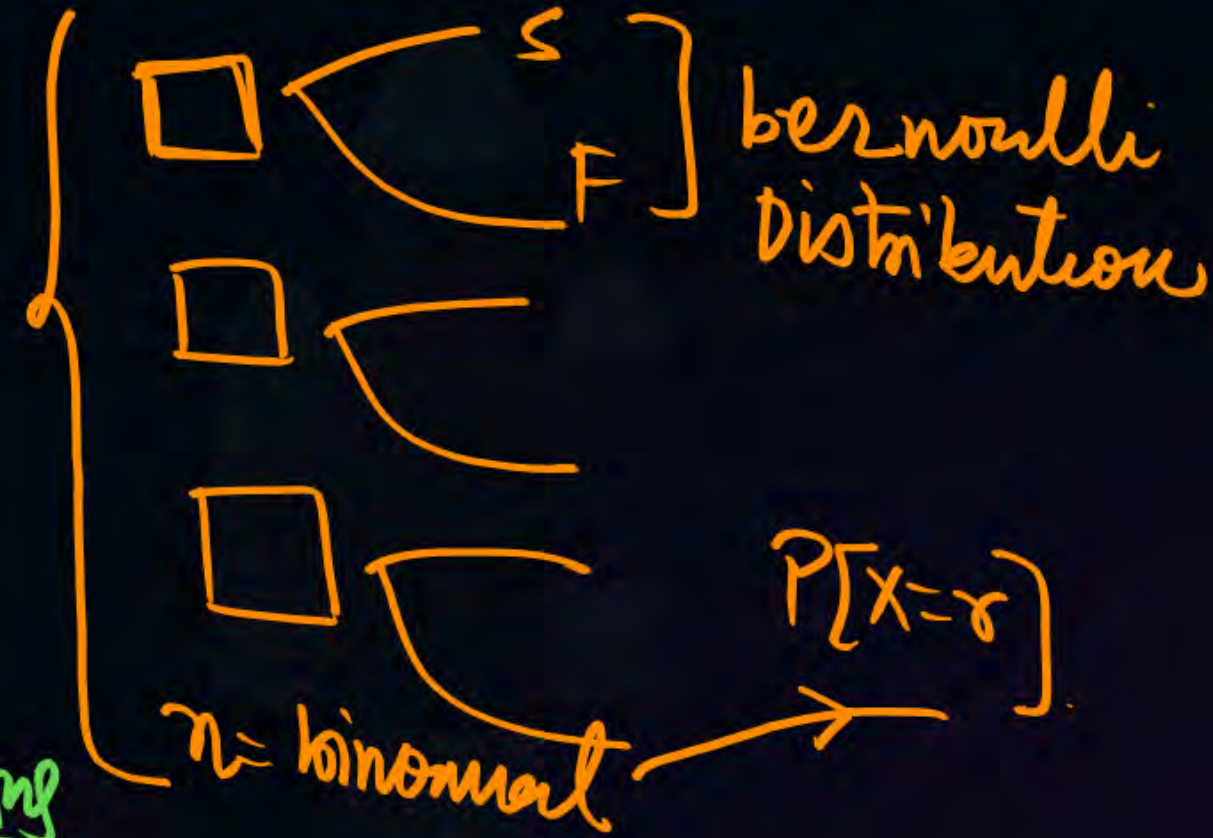 S
F
bernoulli
Distribution
P[X=r]
n= binomial